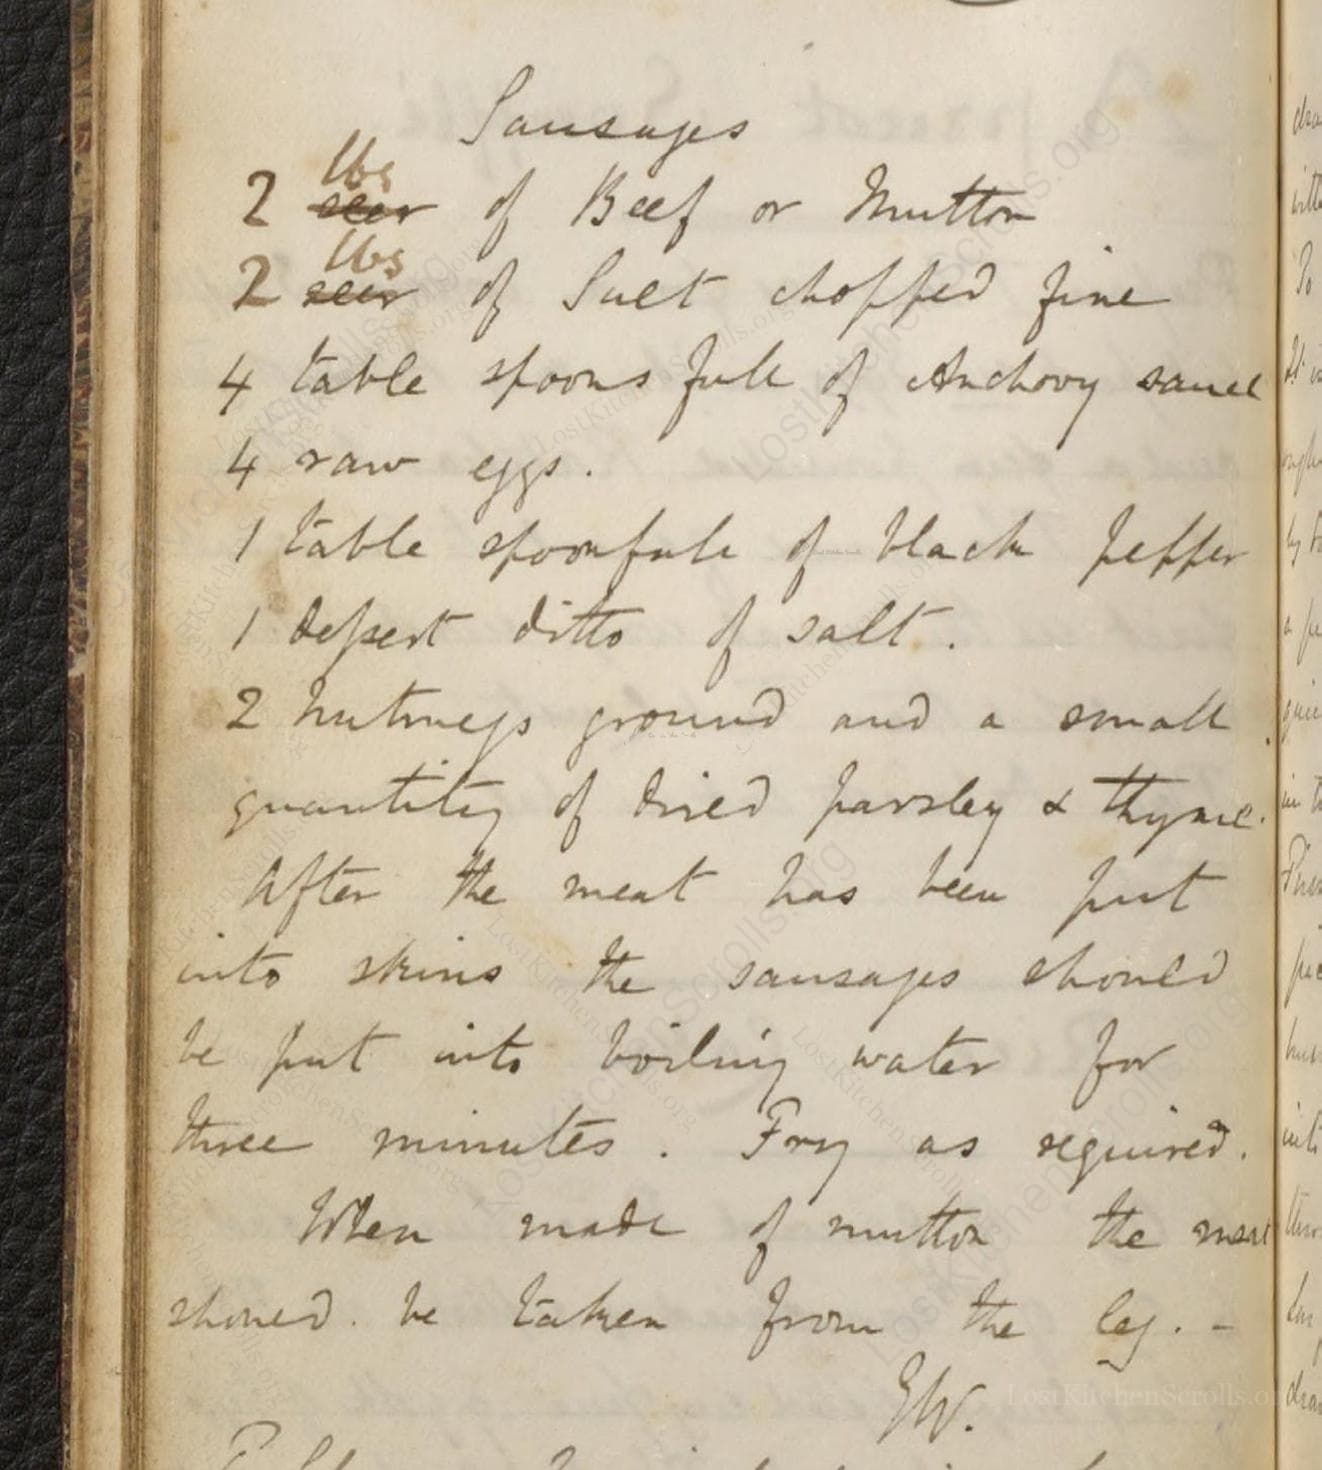 Sausages
lbs
2 seer of Beef or Mutton
lbs
2 seer of Suet chopped fine
4 table spoons full of Anchovy sauce
4 raw eggs.
1 table spoonfull of black pepper
1 dessert ditto of salt.
2 nutmegs ground and a small
quantity of dried parsley & thyme.
After the meat has been put
into skins the sausages should
be put into boiling water for
three minutes. Fry as required.
When made of mutton the meat
should be taken from the leg. -
GW.
LostKitchenScrolls.org